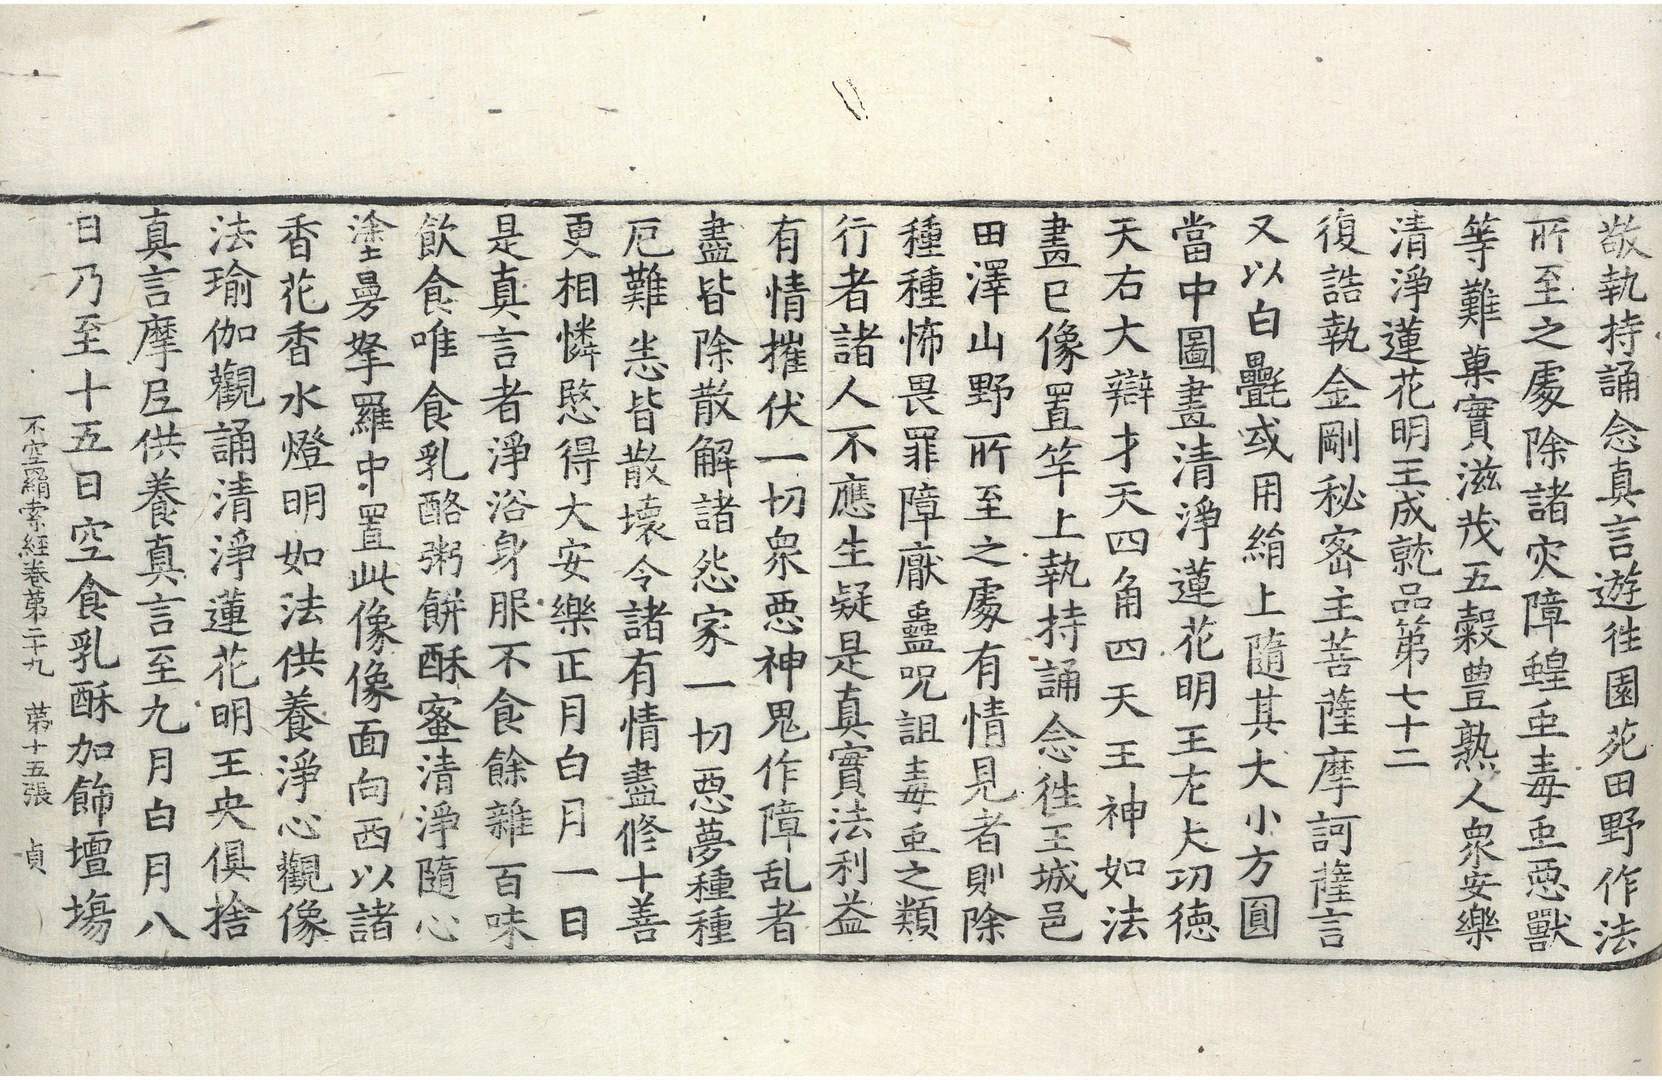 敬執持誦念真言遊往園苑田野作法
所至之處除諸灾障蝗虫毒虫惡獸
等難菓實滋茂五穀豊熟人衆安樂
清淨蓮花明王成就品第七十二
復誥執金剛秘密主菩薩摩訶薩言
又以白㲲或用絹上隨其大小方圓
當中圖畫清淨蓮花明王左大功德
天右大辯才天四角四天王神如法
畫已像置竿上執持誦念往王城邑
田澤山野所至之處有情見者則除
種種怖畏罪障厭蠱呪詛毒虫之類
行者諸人不應生疑是真實法利益
有情摧伏一切衆惡神鬼作障乱者
盡皆除散解諸怨家一切惡夢種種
厄難恙皆散壞令諸有情盡修十善
更相憐愍得大安樂正月白月一日
是真言者淨浴身服不食餘雜百味
飲食唯食乳酪粥餅酥蜜清淨隨心
塗曼拏羅中置此像像面向西以諸
香花香水燈明如法供養淨心觀像
法瑜伽觀誦清淨蓮花明王央俱捨
真言摩尼供養真言至九月白月八
日乃至十五日空食乳酥加飾壇場
不空羂索經卷第二十九　第十五張　貞